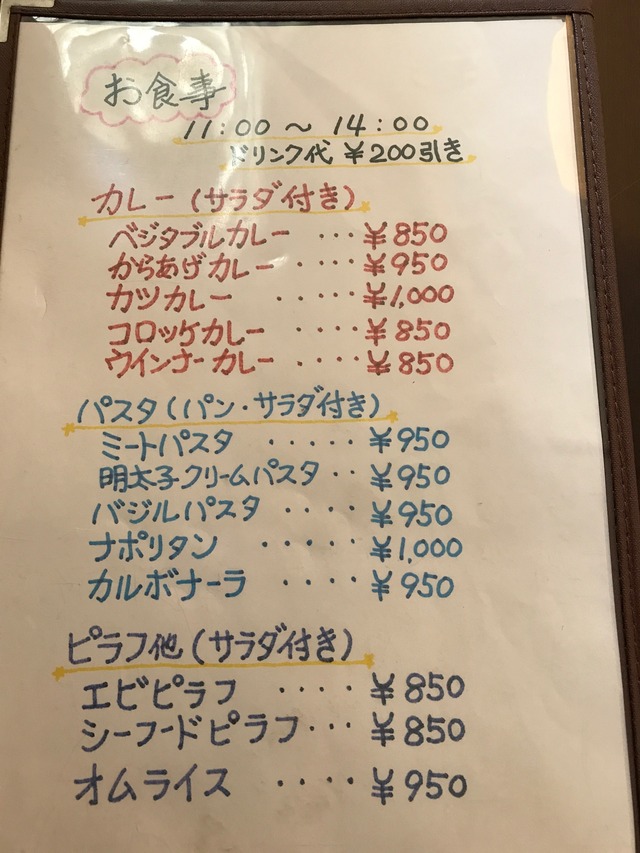 お食事
11:00 ～ 14:00
ドリンク代 ¥200引き
カレー(サラダ付き)
ベジタブルカレー ・・・ ¥850
からあげカレー ・・・・ ¥950
カツカレー ・・・・・ ¥1,000
コロッケカレー ・・・・ ¥850
ウインナーカレー ・・・・ ¥850
パスタ(パン・サラダ付き)
ミートパスタ ・・・・・ ¥950
明太子クリームパスタ ・・ ¥950
バジルパスタ ・・・・ ¥950
ナポリタン ・・・・・ ¥1,000
カルボナーラ ・・・・ ¥950
ピラフ他(サラダ付き)
エビピラフ ・・・・ ¥850
シーフードピラフ ・・・ ¥850
オムライス ・・・・ ¥950